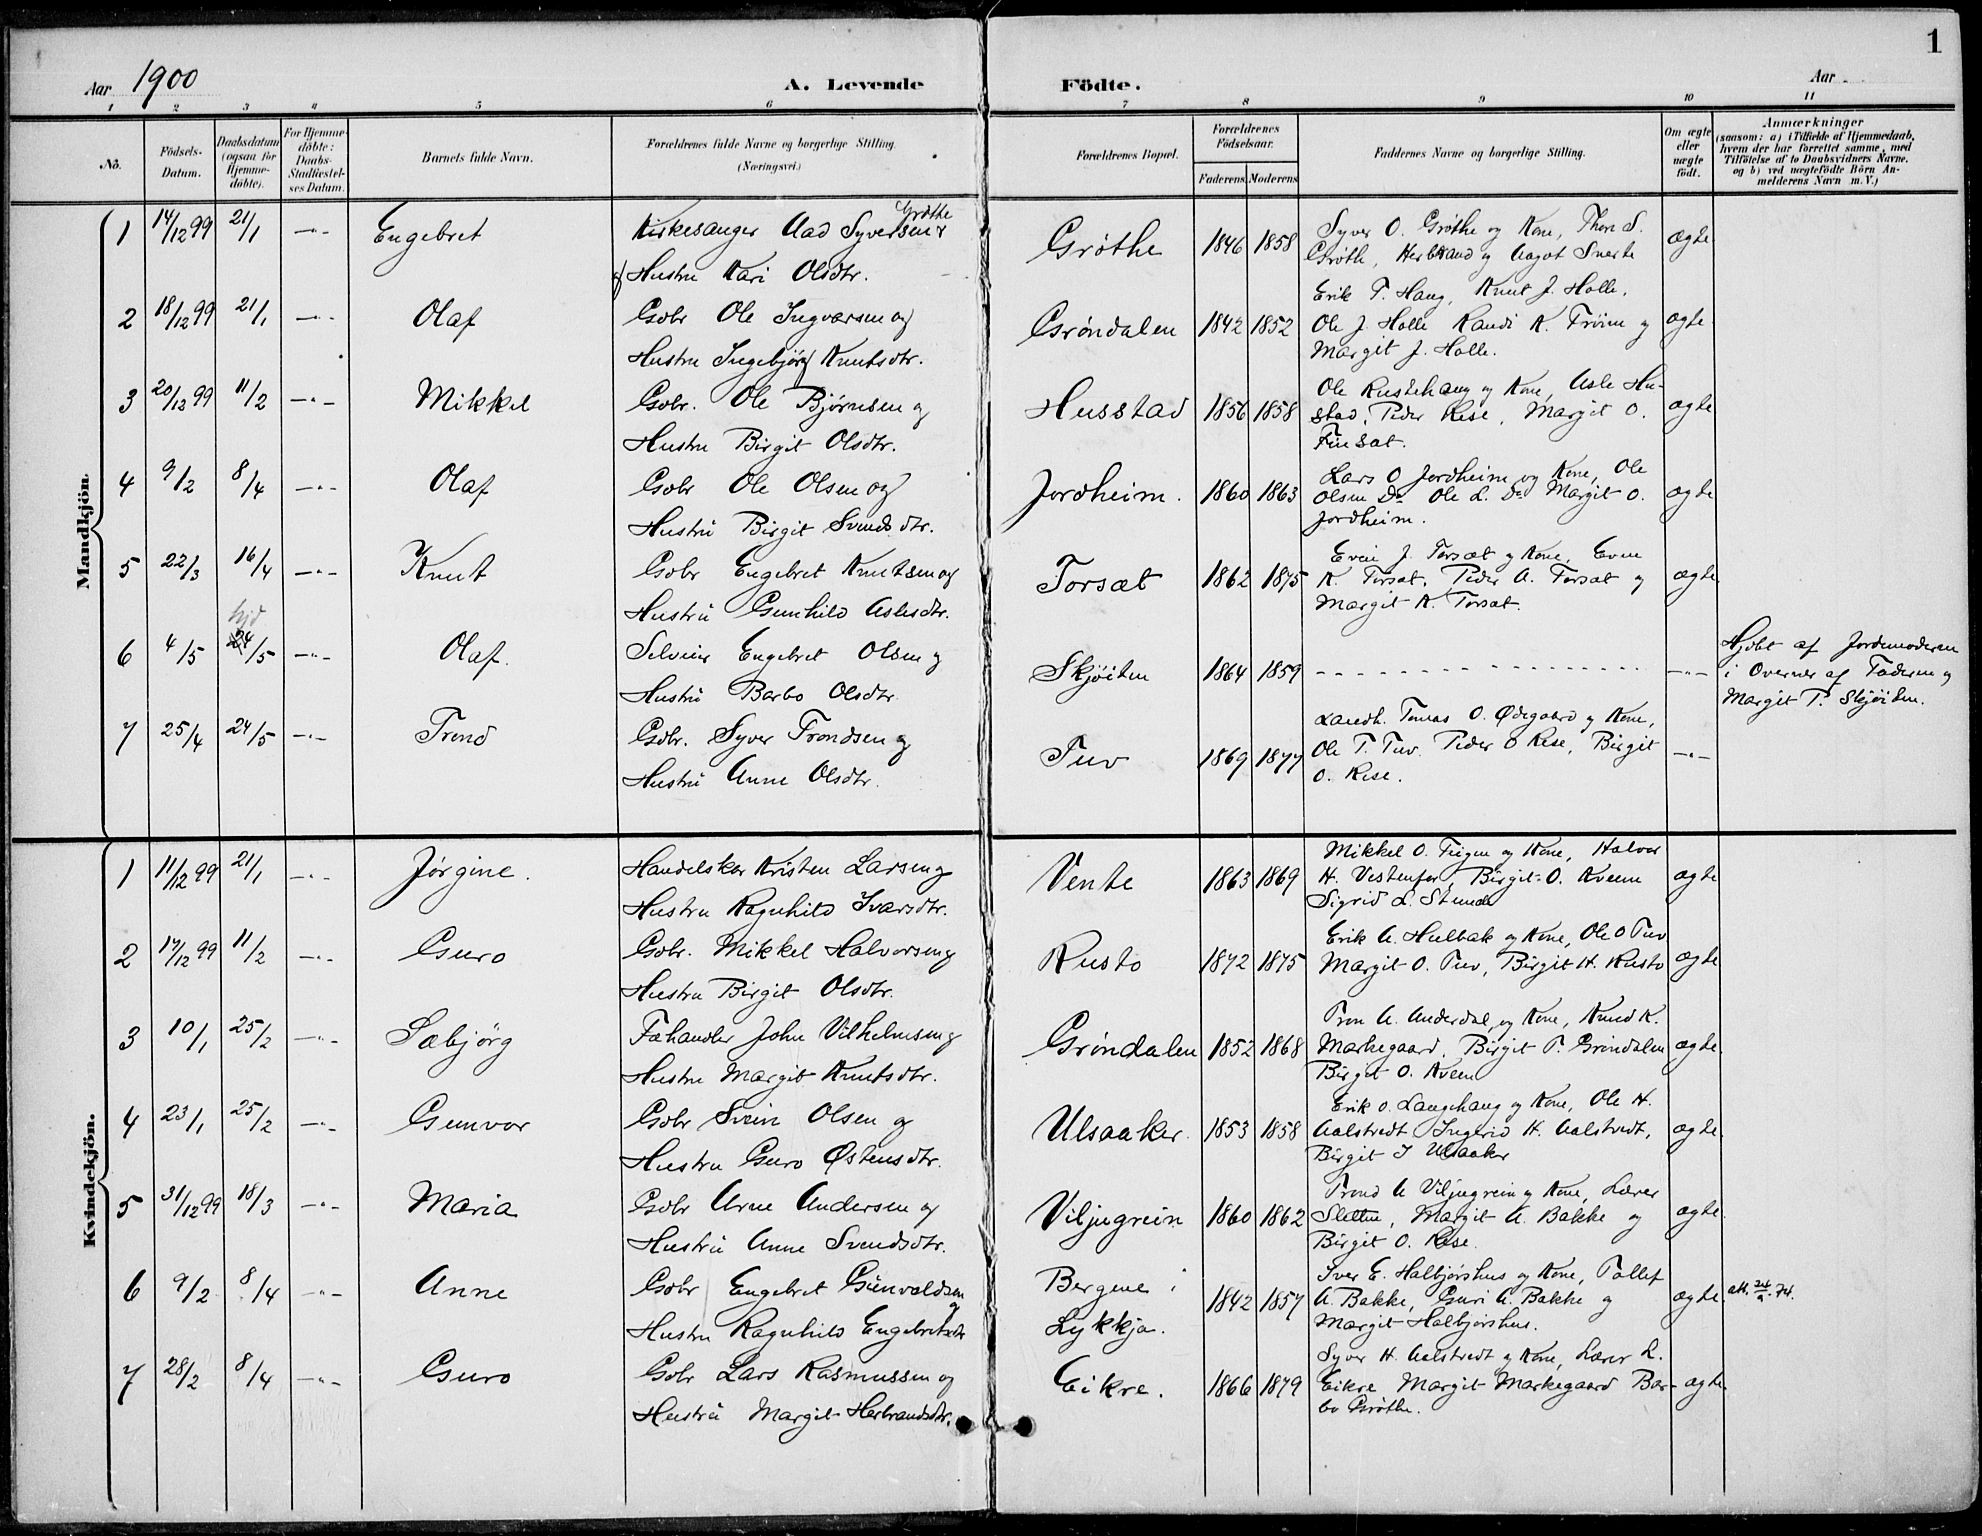 1
Aar 1900 A. Levende Födte. Aar
1 2 3 4 5 6 7 8 9 10 11
Nö. Födsels-Datum. Daabsdatum (ogsaa för Hjemmedöbte). For Hjemmedöbte: Daabs-Stadfæstelses Datum. Barnets fulde Navn. Forældrenes fulde Navne og borgerlige Stilling. (Næringsvei.) Forældrenes Bopæl. Forældrenes Födselsaar. Faderens Moderens Faddernes Navne og borgerlige Stilling. Om ægte eller uægte födt. Anmærkninger (saasom: a) i Tilfælde af Hjemmedaab, hvem der har forrettet samme, med Tilföielse af to Daabsvidners Navne, og b) ved uægtefödte Börn Anmelderens Navn m. V.)
Mandkjön.
1 14/12 99 21/1 -"- Engebret Kirkesanger Aad Syversen Grøthe
& Hustru Kari Olsdtr. Grøthe 1846 1858 Syver O. Grøthe og Kone, Thor S.
Grøth, Herbrand og Aagot Svarte ægte
2 18/12 99 21/1 -"- Olaf Gbr Ole Ingvarsen og
Hustru Ingebjørg Knutsdtr. Grøndalen 1842 1852 Erik T. Haug, Knut J. Halle,
Ole J. Halle Randi K. Trøim og
Margit J. Halle. ægte
3 20/12 99 11/2 -"- Mikkel Gbr. Ole Bjørnsen og
Hustru Birgit Olsdtr. Husstad 1856 1858 Ole Rustehaug og Kone, Asle Hu-
stad, Peder Rese, Margit O.
Finset. ægte
4 9/2 8/4 -"- Olaf Gbr Ole Olsen og
Hustru Birgit Svendsdtr. Jordheim. 1860 1863 Lars O Jordheim og Kone, Ole
Olsen Do Ole L. Do Margit O.
Jordheim. ægte
5 22/3 16/4 -"- Knut Gbr Engebret Knutsen og
Hustru Gunhild Aslesdtr. Torsæt 1862 1875 Even J. Torsæt og Kone, Even
K. Torsæt, Peder A. Torsæt og
Margit K. Torsæt. ægte
hjd
6 4/5 24/5 -"- Olaf. Selveier Engebret Olsen og
Hustru Barbo Olsdtr. Skjøiten 1864 1859 - - - - - -"- Hjdbt af Jordemoderen
i Overvær af Faderen og
Margit P. Skjøiten.
7 25/4 24/5 -"- Trond Gbr. Syver Trondsen og
Hustru Anne Olsdtr. Tuv 1869 1877 Landh. Tomas O. Ødegaard og Kone,
Ole T. Tuv. Peder O Rese, Birgit
O. Rese. -"-
Kvindekjön.
1 11/12 99 21/1 -"- Jørgine. Handelskar Kristen Larsen og
Hustru Ragnhild Ivarsdtr. Vente 1863 1869 Mikkel O. Feigen og Kone, Halvor
H. Vestenfor, Birgit O. Kveen
Sigrid L. ægte
2 17/12 99 11/2 -"- Guro Gbr. Mikkel Halvorsen og
Hustru Birgit Olsdtr. Rusto 1872 1875 Erik A. Hulbak og Kone, Ole O Tuv
Margit O. Tuv, Birgit H. Rusto ægte
3 10/1 25/2 -"- Sæbjørg Fæhandler John Vilhelmsen og
Hustru Margit Knutsdtr. Grøndalen 1852 1868 Tron A. Anderdal og Kone, Knud K.
Markegaard, Birgit T. Grøndalen
Birgit O. Kveen ægte.
4 23/1 25/2 -"- Gunvor Gbr Svein Olsen og
Hustru Guro Østensdtr. Ulsaaker. 1853 1858 Erik O. Langehaug og Kone, Ole H.
Aalstvedt Ingerid H. Aalstvedt,
Birgit I Ulsaaker ægte.
5 31/12 99 18/3 -"- Maria Gbr Arne Andersen og
Hustru Anne Svendsdtr. Viljugrein 1860 1862 Trond A Viljugrein og Kone, Lærer
Slette, Margit A. Bakke og
Birgit O. Rese. ægte.
6 9/2 8/4 -"- Anne Gbr Engebret Gunvaldsen og
Hustru Ragnhild Engebretsdtr Bergene i
Lykkja. 1842 1857 Iver E. Halbjørshus og Kone, Tollef
A. Bakke, Guri A. Bakke og
Margit Halbjørshus. ægte. att. 24/9. 74.
7 28/2 8/4 -"- Guro Gbr Lars Rasmussen og
Hustru Margit Herbrandsdtr. Eikre. 1866 1879 Syver H. Aalstvedt og Kone, Lærer L.
Eikre, Margit Markegaard Bar-
bo Grøthe. ægte.